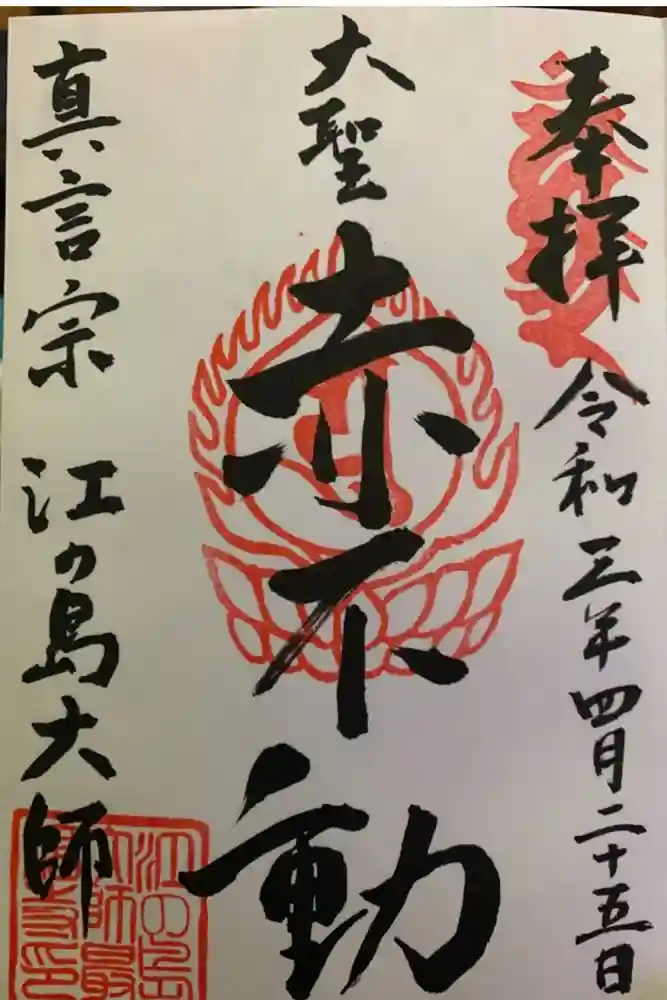 奉拝 令和三年四月二十五日
大聖 赤不動
真言宗 江の島大師
江の島
大師最